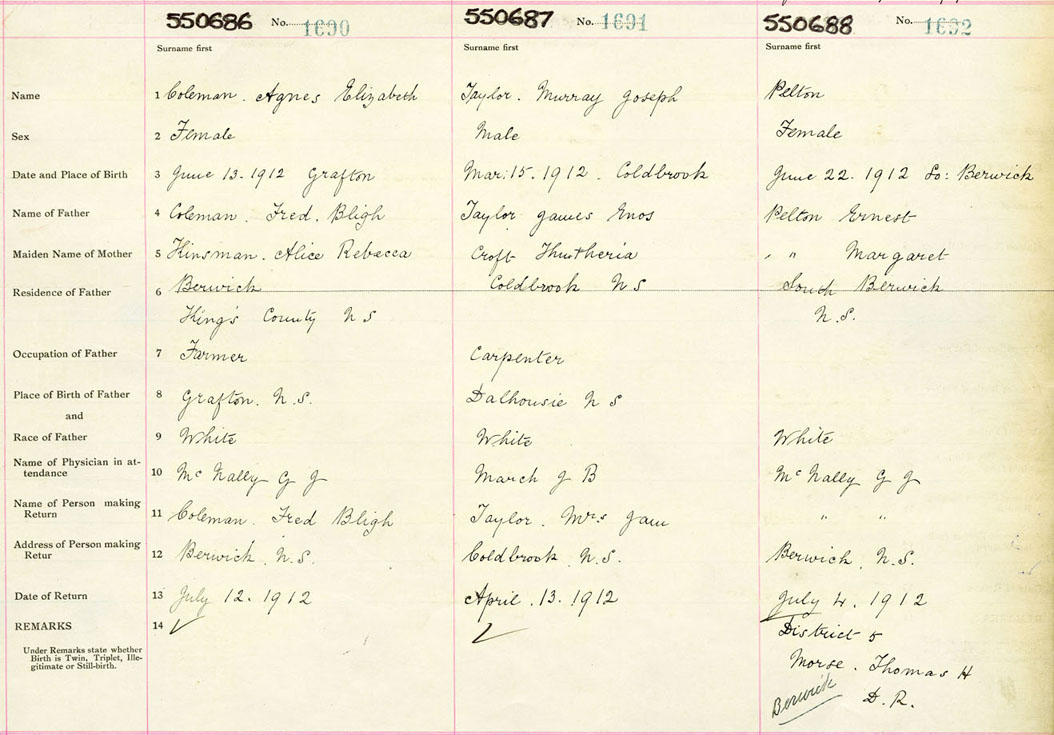 550686 No. 1690 550687 No. 1691 550688 No. 1692
Surname first Surname first Surname first
Name 1 Coleman. Agnes Elizabeth Taylor. Murray Joseph Pelton
Sex 2 Female Male Female
Date and Place of Birth 3 June 13. 1912 Grafton Mar: 15. 1912. Coldbrook June 22. 1912 So: Berwick
Name of Father 4 Coleman. Fred. Bligh Taylor James Enos Pelton Ernest
Maiden Name of Mother 5 Kinsman. Alice Rebecca Croft " " Margaret
Residence of Father 6 Berwick Coldbrook N S South Berwick
Kings County N S N.S.
Occupation of Father 7 Farmer Carpenter
Place of Birth of Father 8 Grafton. N.S. Dalhousie N S
and
Race of Father 9 White White White
Name of Physician in at-
tendance 10 Mc Nally G J March J B Mc Nally G J
Name of Person making
Return 11 Coleman. Fred Bligh Taylor. Mrs " "
Address of Person making
Retur 12 Berwick. N.S. Coldbrook N.S. Berwick. N.S.
Date of Return 13 July 12. 1912 April. 13. 1912 July 4. 1912
REMARKS 14 ✓ ✓ District 5
Under Remarks state whether
Birth is Twin, Triplet, Ille-
gitimate or Still-birth.
Morse. Thomas H
Berwick D.R.